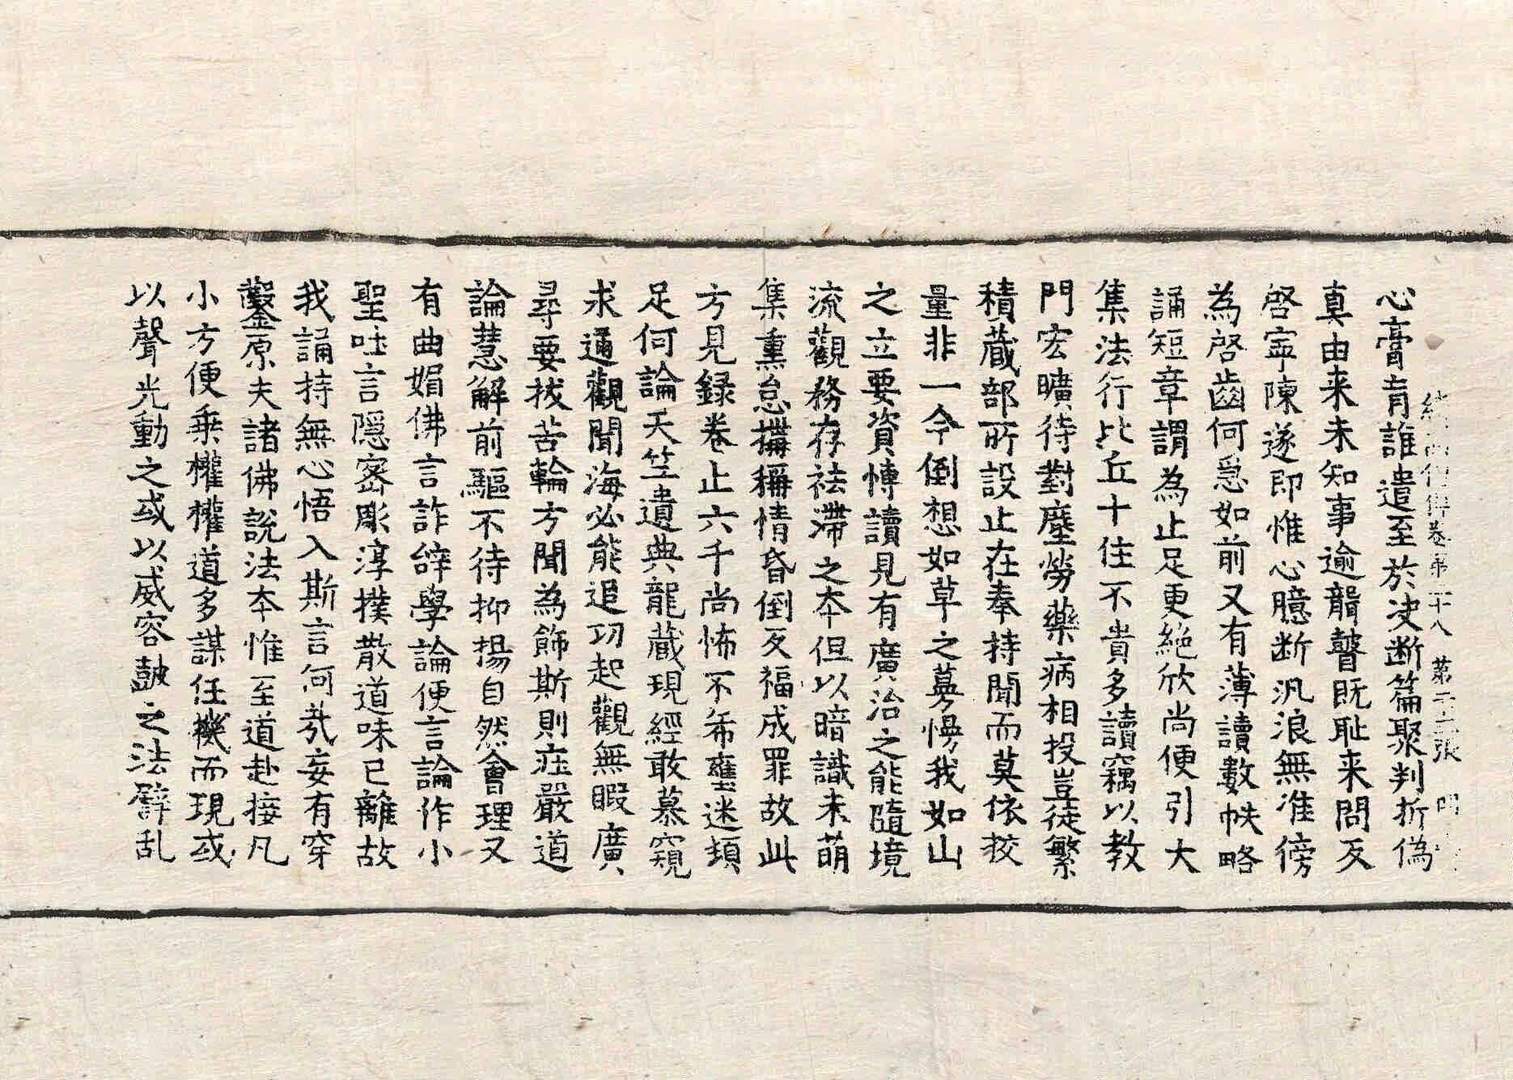 心膏肓誰遣至於决断篇聚判折僞
真由来未知事逾聾瞽既耻来問反
啓寧陳遂即惟心臆断汎浪無准傍
為啓齒何急如前又有薄讀數帙略
誦短章謂為止足更絶欣尚便引大
集法行比丘十住不貴多讀竊以教
門宏曠待對塵勞藥病相投豈徒繁
積蔵部所設止在奉持聞而莫依挍
量非一今倒想如草之蕚慢我如山
之立要資轉讀見有廣治之能隨境
流觀務存袪滯之夲但以暗識未萌
集熏怠搆稱情昏倒反福成罪故此
方見録卷止六千尚怖不希壅迷頓
足何論天竺遺典龍蔵現經敢慕窺
求通觀聞海必能追功起觀無暇廣
尋要拔苦輪方聞為飾斯則莊嚴道
論慧解前驅不待抑揚自然會理又
有曲媚佛言詐辝學論便言論作小
聖吐言隱密彫淳撲散道味已離故
我誦持無心悟入斯言何㢤妄有穿
鑿原夫諸佛說法夲惟至道赴接凡
小方便乗權權道多謀任機而現或
以聲光動之或以威容皷之法辟乱
卷第二十八 第二十二張